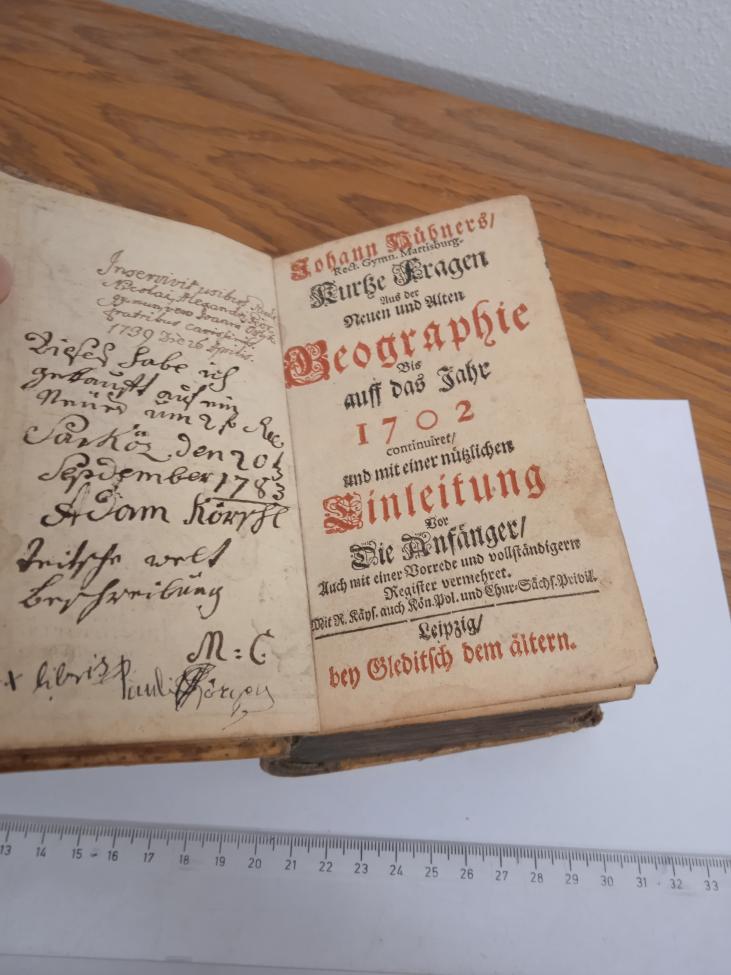 Inservivit usibus Pauli
Nicolai, Alexandri Geor-
fratribus carissimis.
1739 Die 26 Aprilis.
Dieses habe ich
gekauft auf ein
Neües um 2 f
Sarköz den 20t
September 1783
Adam Körschl
Teitsche welt
beschreibüng
M : C
x libris Pauli
Johann Hübners/
Rect. Gymn. Martisburg-
Kurtze Fragen
Aus der
Neuen und Alten
Geographie
Bis
auff das Jahr
1702
continuiret/
und mit einer nützlichen
Einleitung
Vor
Die Anfänger/
Auch mit einer Vorrede und vollständigern
Register vermehret.
Mit R. Käys. auch Kön. Pol. und Chur-Sächs. Privil.
Leipzig/
bey Gleditsch dem ältern.
13 14 15 16 17 18 19 20 21 22 23 24 25 26 27 28 29 30 31 32 33